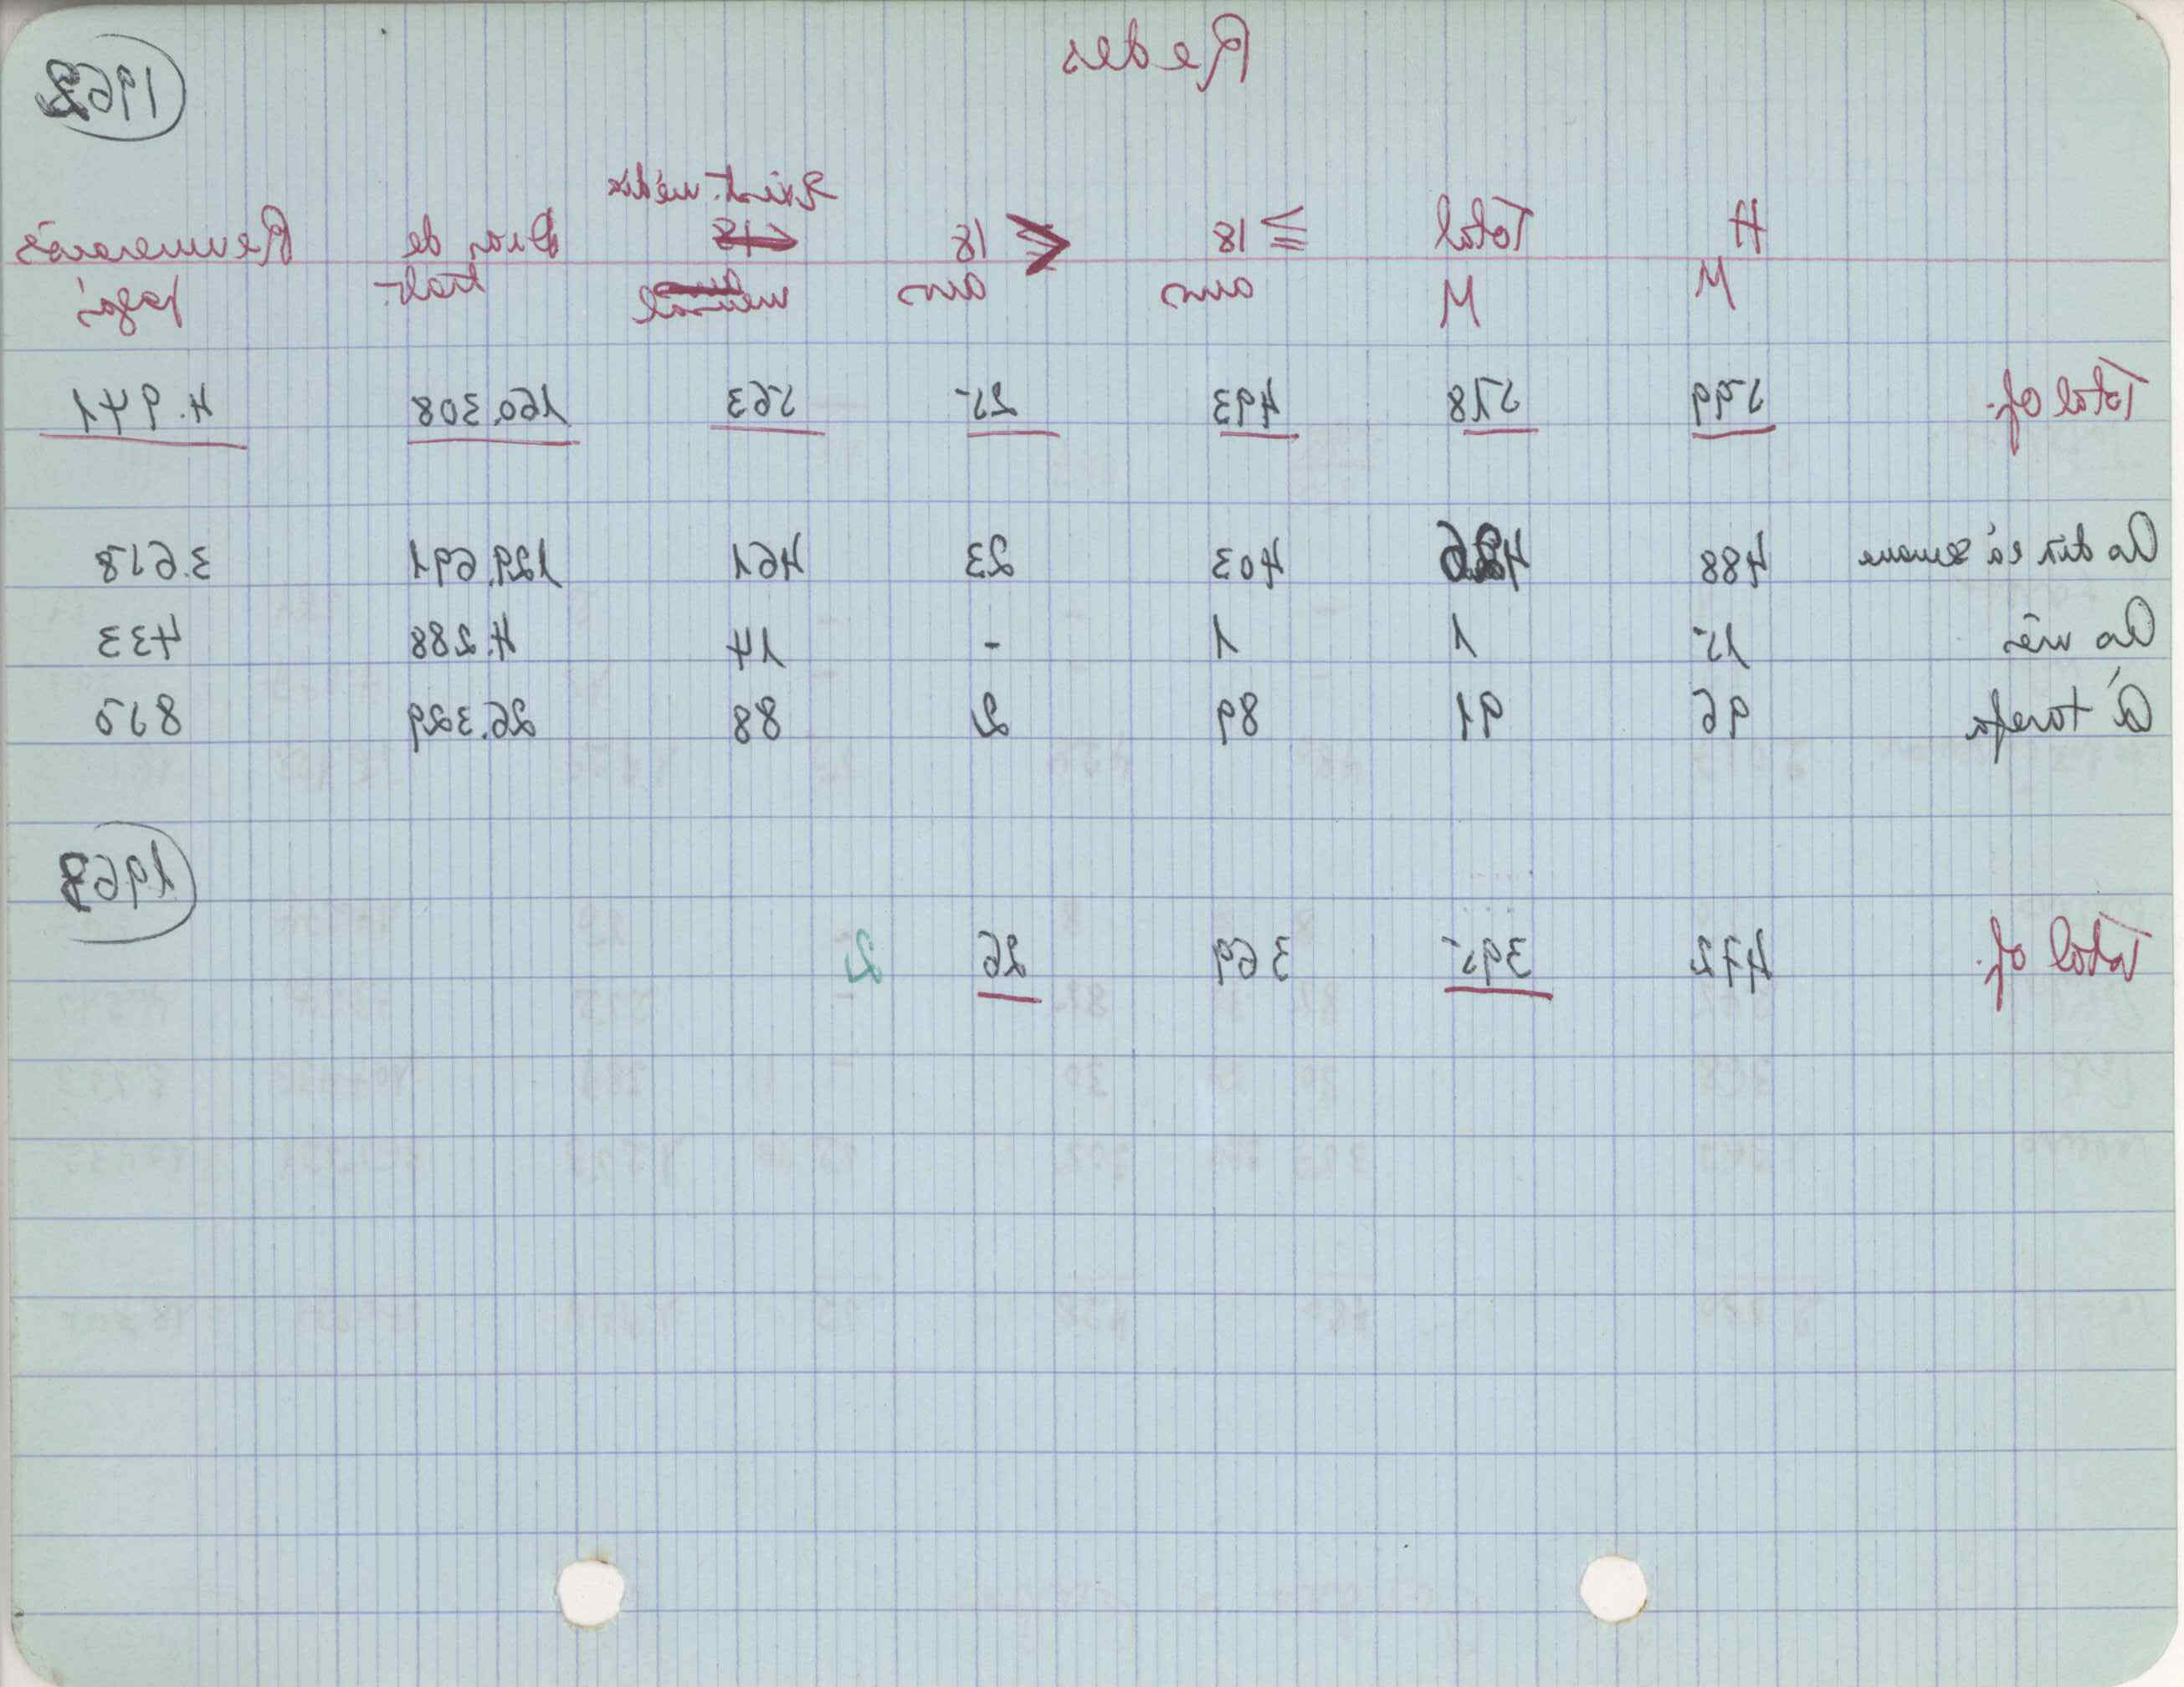 Redes
1962
H M Total M ≥ 18 ans < 18 ans Exist. média mensal Dias de trab. Remunerações pagas
Total of. 599 518 493 25 563 160.308 4.941
Ao dia e à semana 488 426 403 23 461 129.691 3.658
Ao mês 15 1 1 - 14 4.288 433
À tarefa 96 91 89 2 88 26.329 850
1963
Total of. 472 395 369 26 2